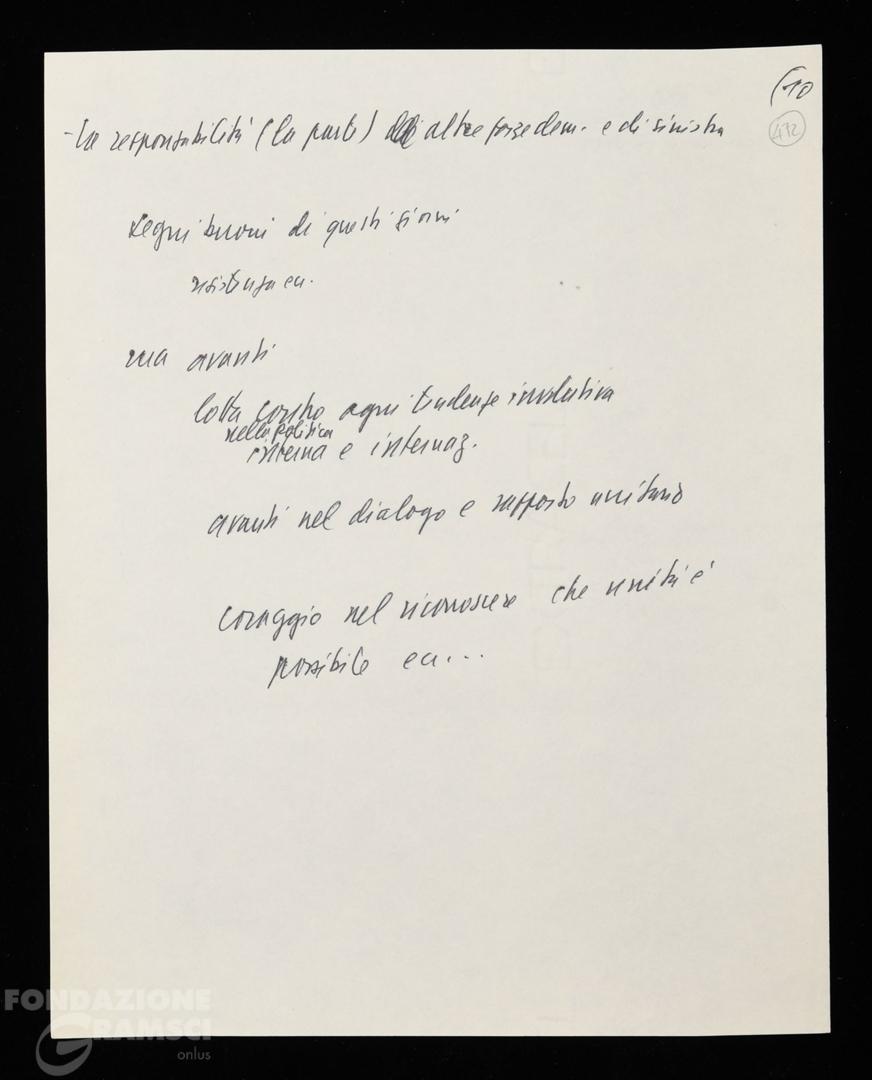 (10
432
- La responsabilità (la parte) di altre forze dem. e di sinistra
segni buoni di questi giorni
resistenza ecc.
ma avanti
lotta contro ogni tendenza involutiva
nella politica
interna e internaz.
avanti nel dialogo e rapporto unitario
coraggio nel riconoscere che unità è
possibile ecc...
FONDAZIONE
GRAMSCI
onlus